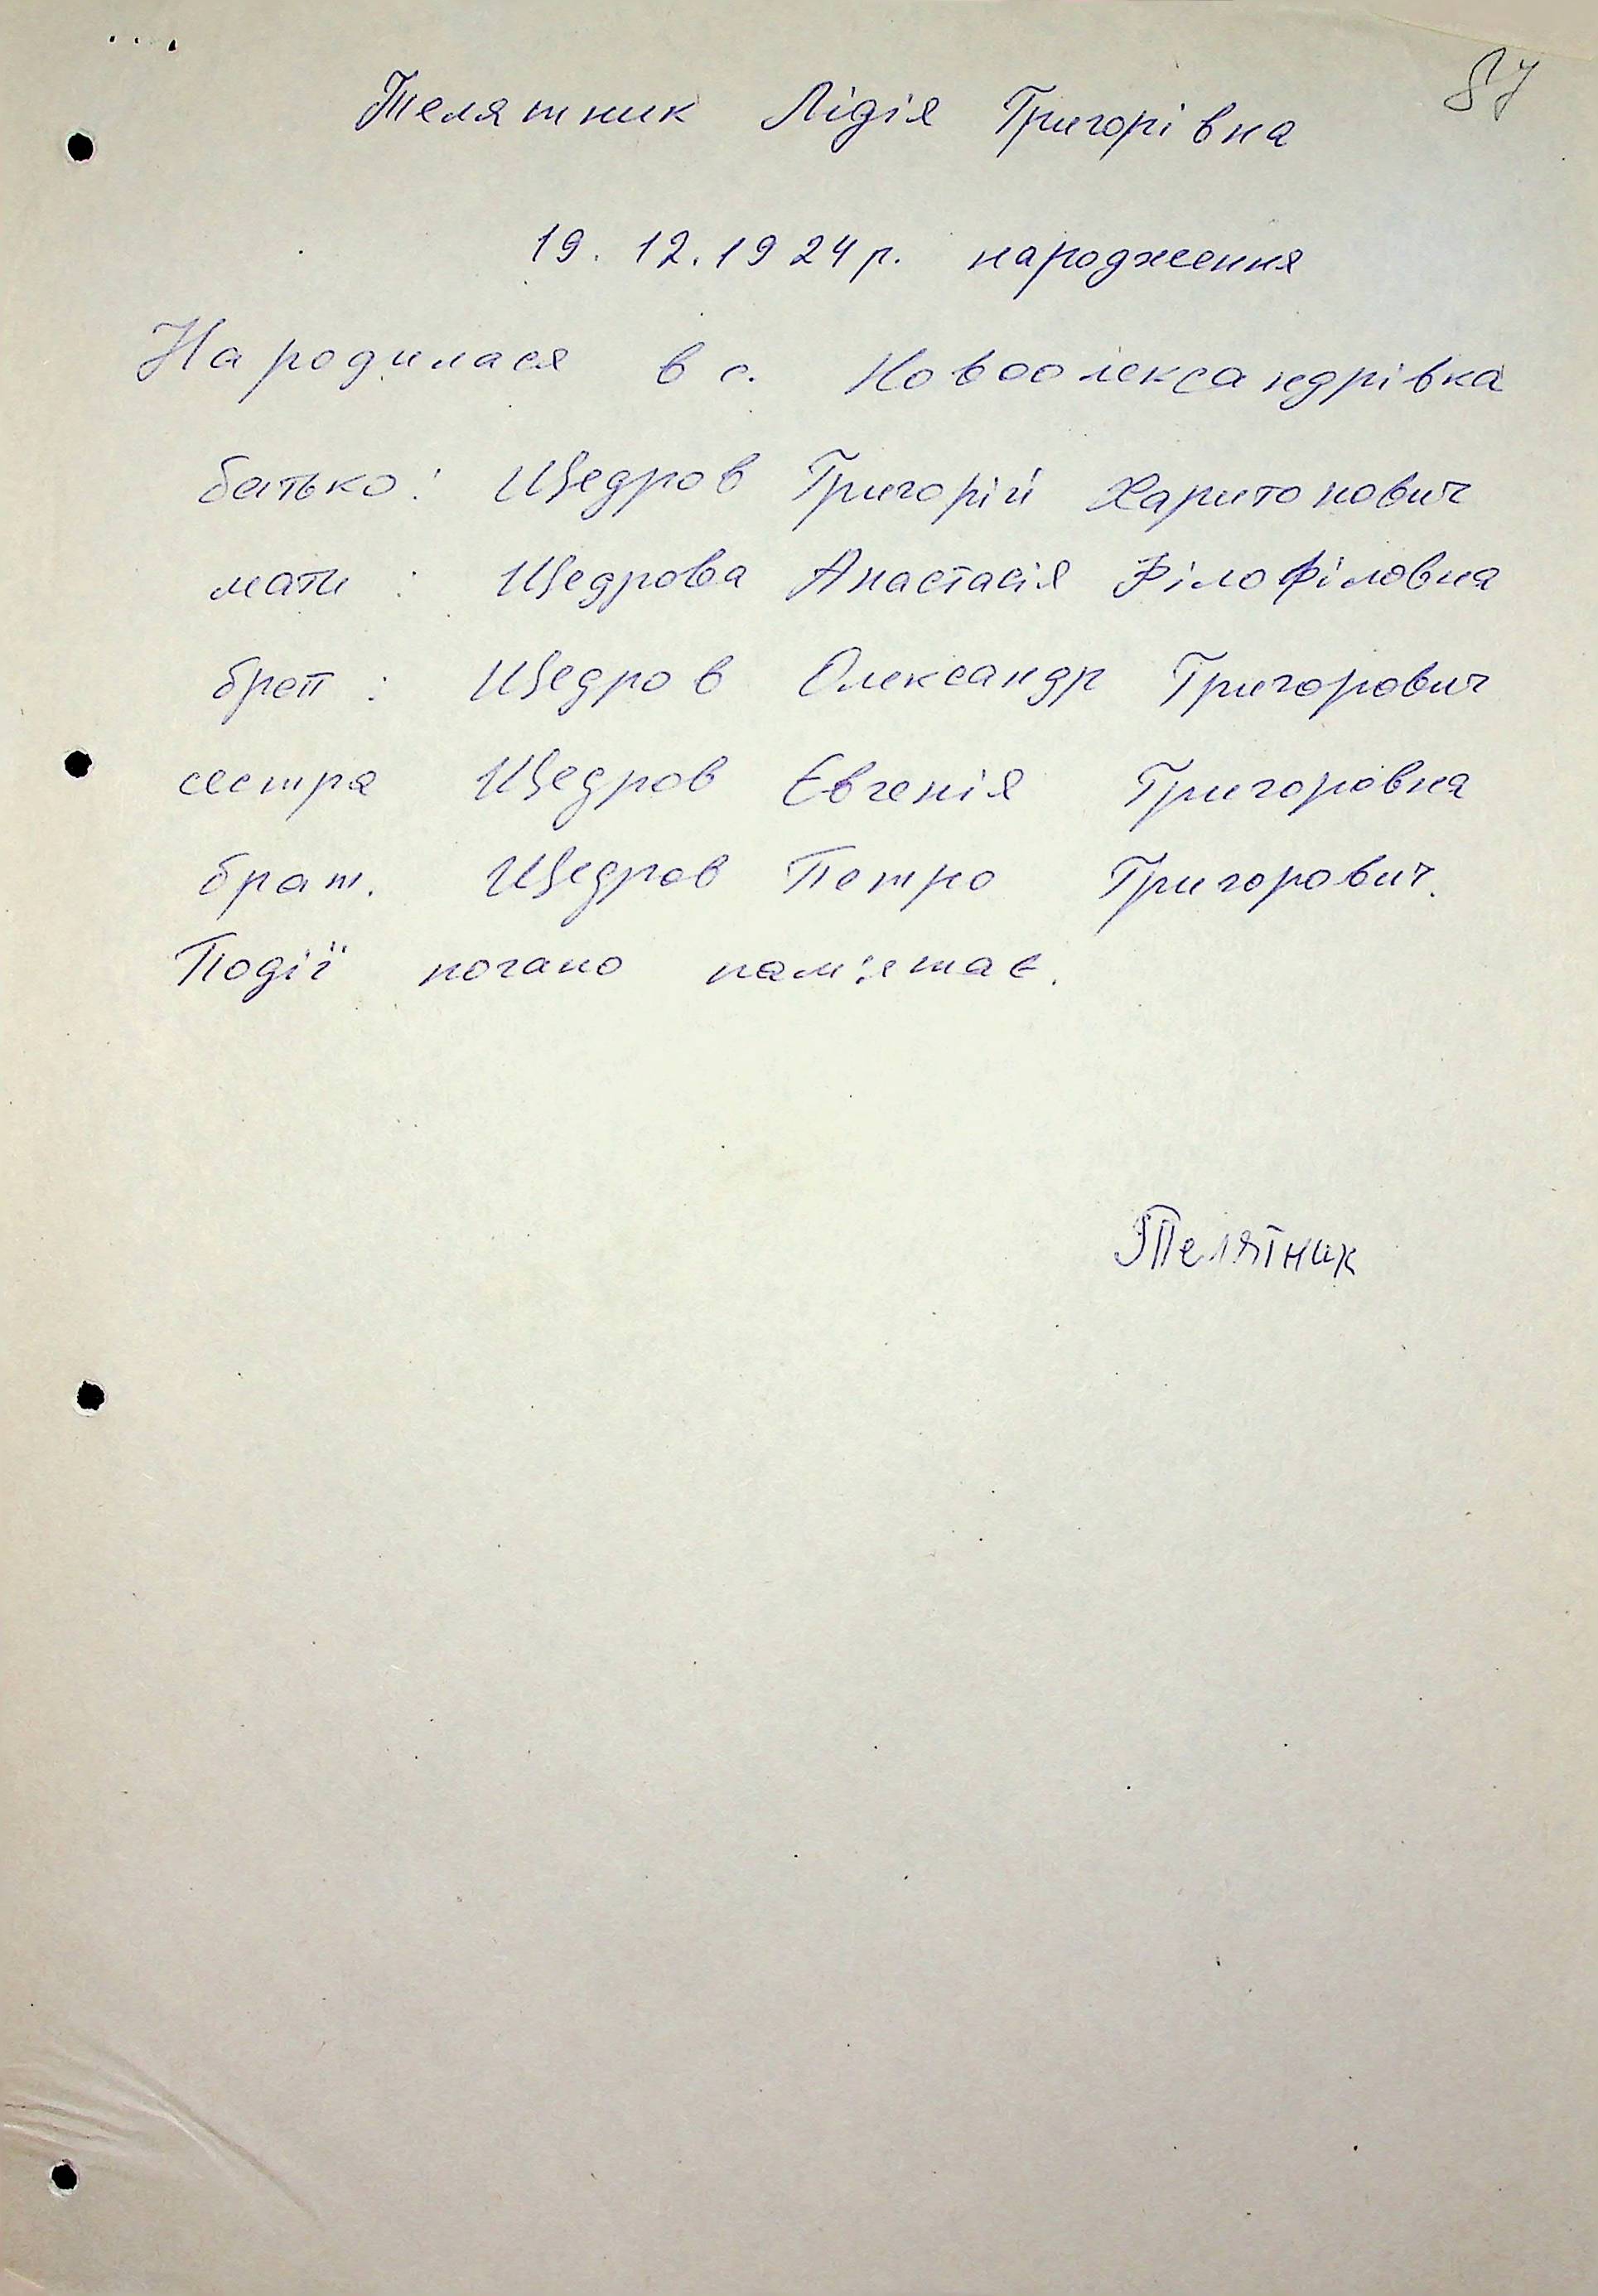 87
Телятник Лідія Григорівна
19.12.1924р. народження
Народилася в с. Новоолександрівка
батько: Щедров Григорій Харитонович
мати : Щедрова Анастасія Філофіловна
брат : Щедров Олександр Григорович
сестра Щедров Євгенія Григоровна
брат. Щедров Петро Григорович.
Події погано пам'ятає.
Телятник